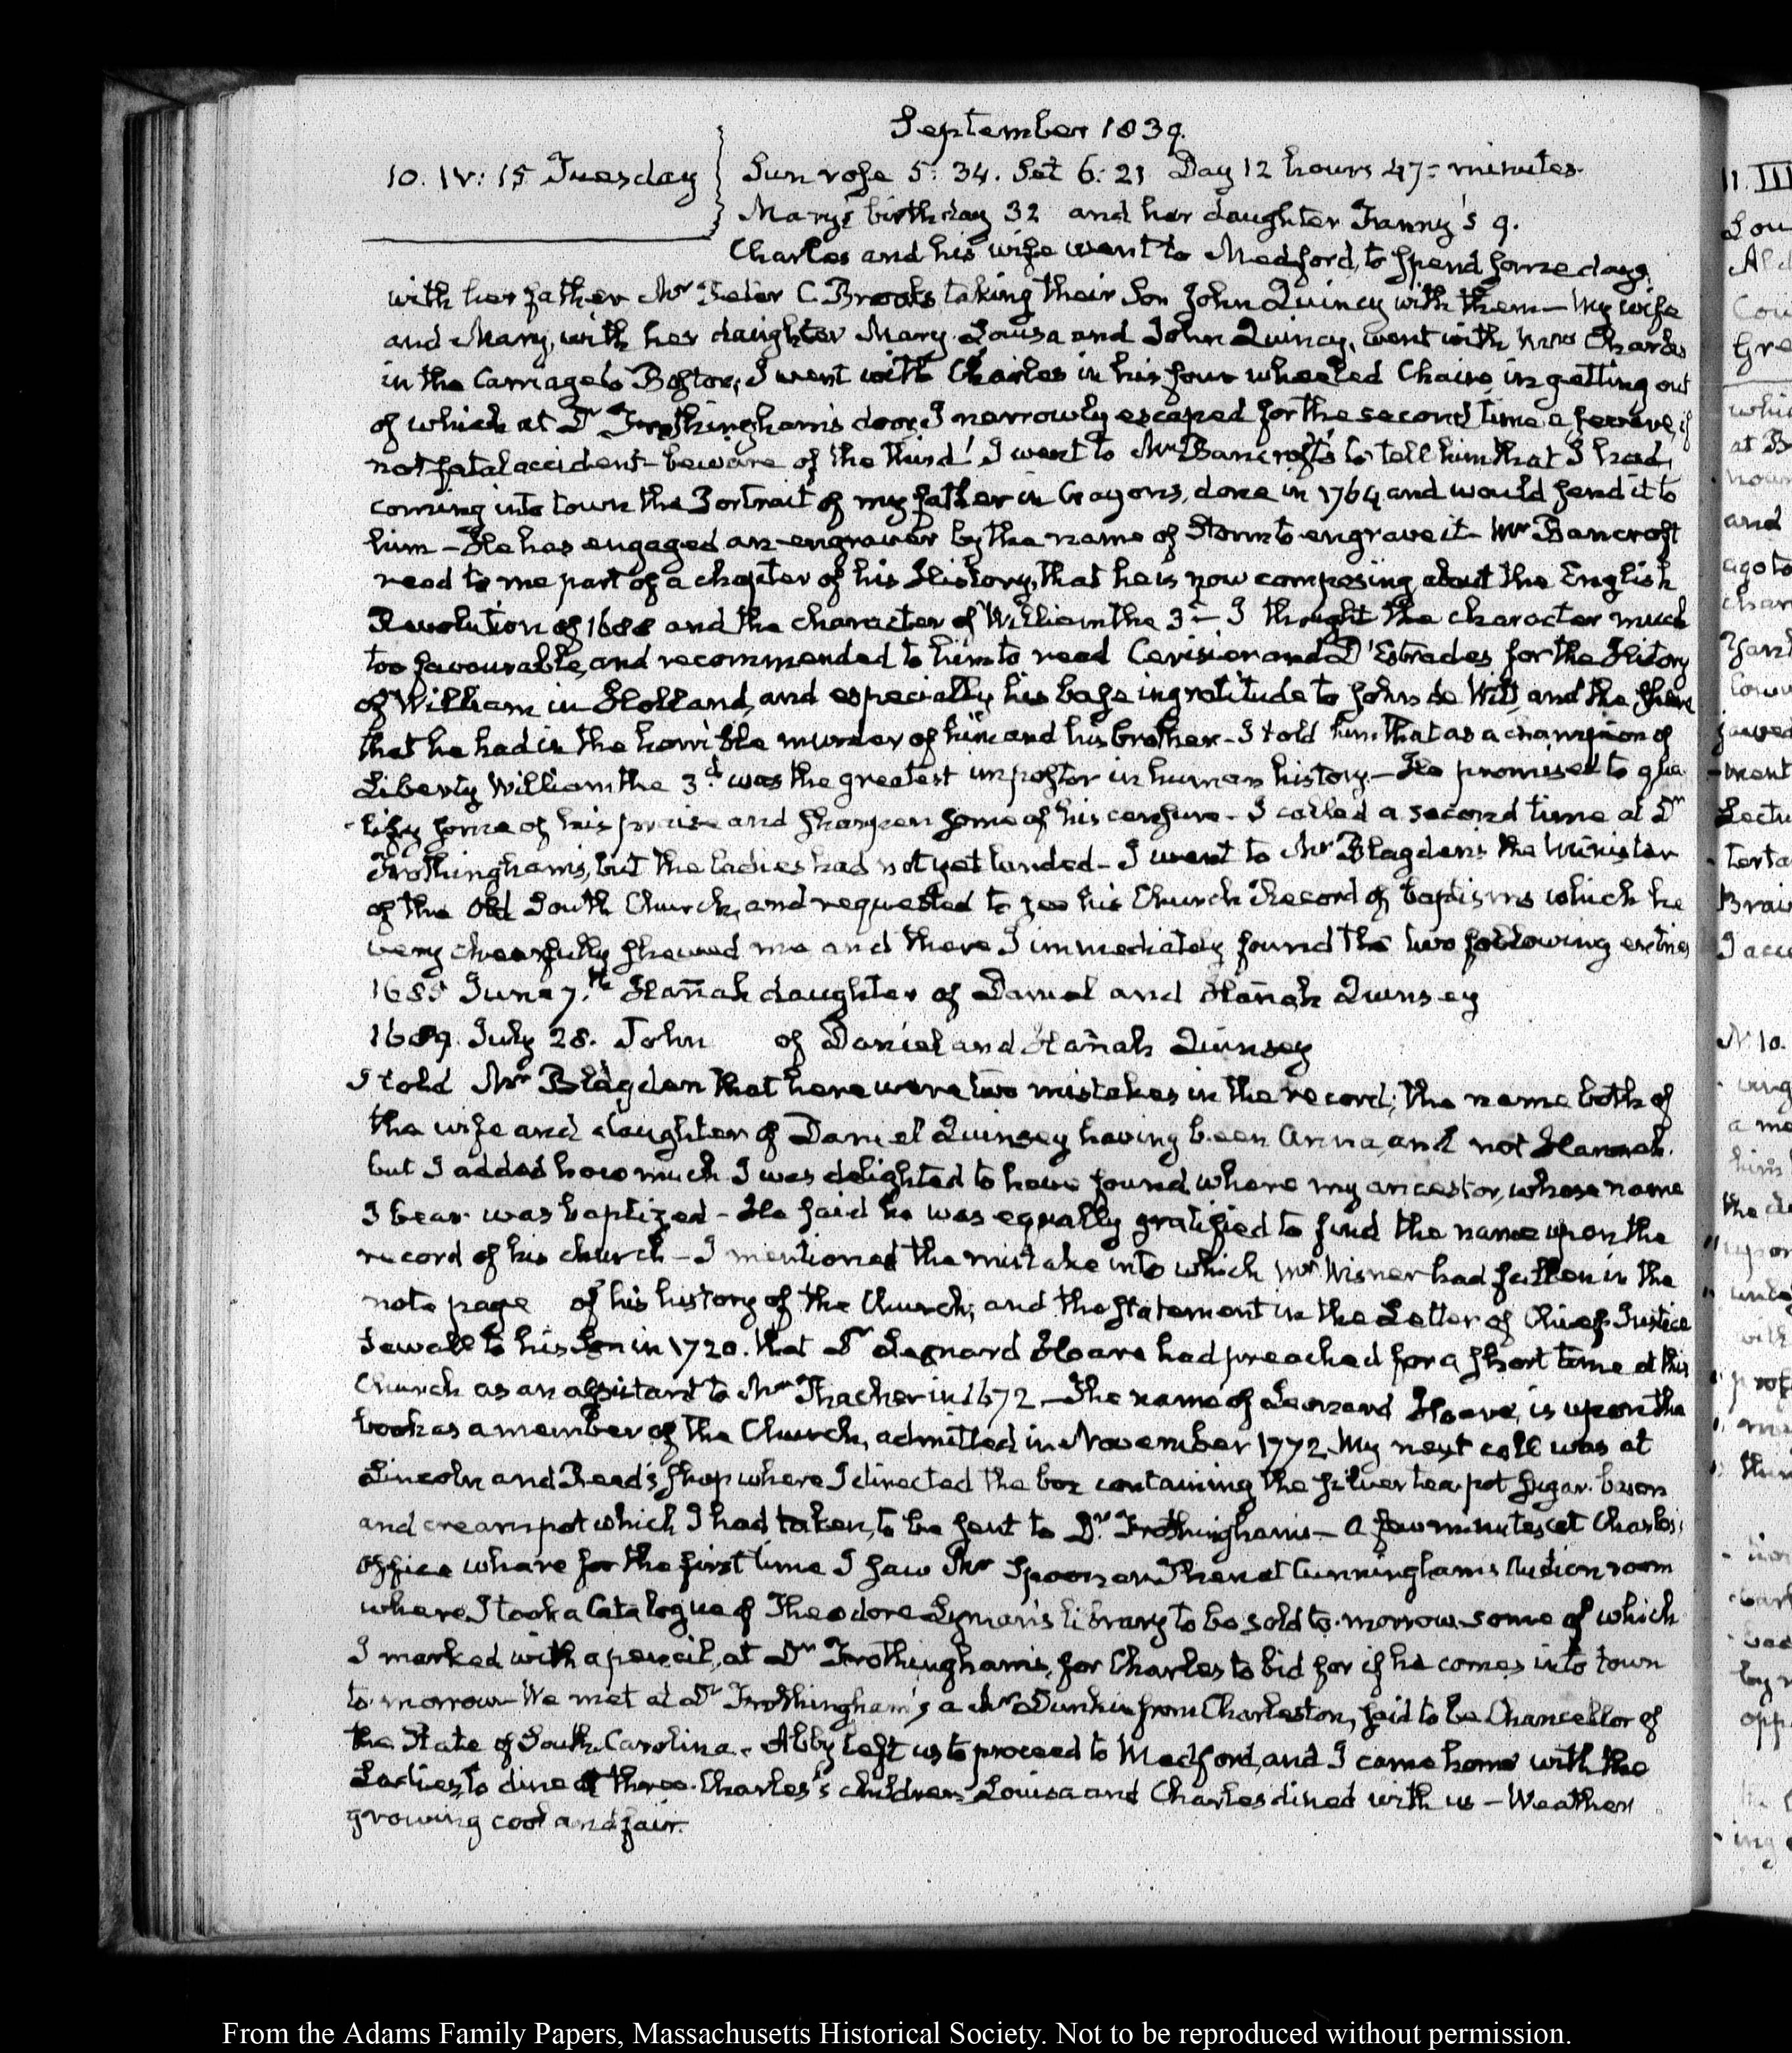 September 1839.
10. IV: 15 Tuesday Sun rose 5: 34. Set 6: 21 Day 12 hours 47 minutes.
Mary's birth day 32 and her daughter Fanny's 9.
Charles and his wife went to Medford, to spend some days
with her father Mr Peter C. Brooks taking their Son John Quincy with them — My wife
and Mary, with her daughter Mary Louisa and John Quincy, went with Mrs Charles
in the Carriage to Boston; I went with Charles in his four wheeled Chaise, in getting out
of which at Dr Frothingham's door, I narrowly escaped for the second time a severe, if
not fatal accident — beware of the third! I went to Mr Bancroft's to tell him that I had,
coming into town the Portrait of my father in Crayons, done in 1764 and would send it to
him — He has engaged an engraver by the name of to engrave it — Mr Bancroft
read to me part of a chapter of his History, that he is now composing about the English
Revolution of 1688 and the character of William the 3d — I thought the character much
too favourable, and recommended to him to read Cerisier and D'Estrades for the History
of William in Holland, and especially his base ingratitude to John de Witt, and the share
that he had in the horrible murder of him and his brother — I told him that as a champion of
Liberty William the 3d was the greatest impostor in human history. — He promised to qua-
-lify some of his praise and sharpen some of his censure — I called a second time at Dr
Frothingham's, but the ladies had not yet landed — I went to Mr Blagden's the Minister
of the Old South Church, and requested to see his Church Record of baptisms which he
very chearfully shewed me and there I immediately found the two following entries
1685 June 7.th Hañah daughter of Daniel and Hañah Quinsey
1689. July 28. John of Daniel and Hañah Quinsey
I told Mr Blagden that here were two mistakes in the record; the name both of
the wife and daughter of Daniel Quinsey having been Anna, and not Hannah.
but I added how much I was delighted to have found where my ancestor, whose name
I bear was baptized — He said he was equally gratified to find the name upon the
record of his church — I mentioned the mistake into which Mr Wisner had fallen in the
note page of his history of the Church; and the statement in the Letter of Chief Justice
Sewall to his Son in 1720. that Dr Leonard Hoare had preached for a short time at this
Church as an assistant to Mr Thacher in 1672 — The name of Leonard Hoare, is upon the
book as a member of the Church, admitted in November 1772. My next call was at
Lincoln and Reed's shop where I directed the box containing the silver tea-pot sugar-bason
and cream pot which I had taken, to be sent to Dr. Frothingham's — A few minutes at Charles's
Office where for the first time I saw Mr Spooner. Then at Cunningham's Auction room
where I took a Catalogue of Theodore Lyman's library to be sold to-morrow some of which
I marked with a pencil, at Dr Frothingham's, for Charles to bid for if he comes into town
to-morrow — We met at Dr Frothingham's a Mr Dunkin from Charleston, said to be Chancellor of
the State of South Carolina. Abby left us to proceed to Medford, and I came home with the
Ladies, to dine at three. Charles's children Louisa and Charles dined with us — Weather
growing cool and fair.
From the Adams Family Papers, Massachusetts Historical Society. Not to be reproduced without permission.